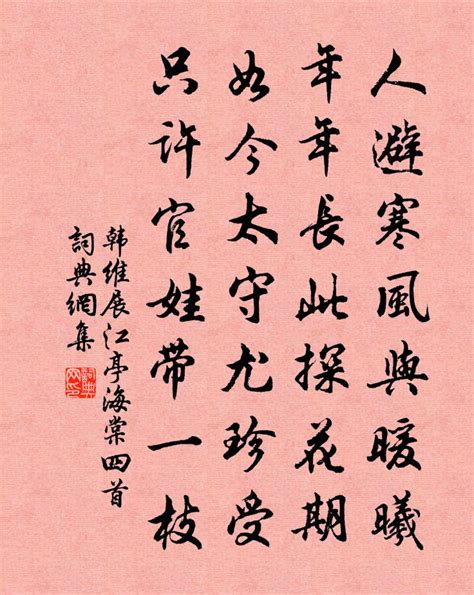 人避寒風與暖曦
年年長此探花期
如今太守尤珍受
只許官娃帶一枝
韩維展江亭海棠四首
詞典網集